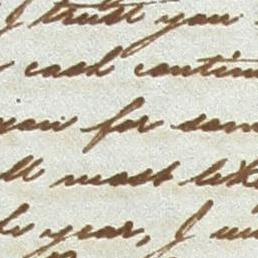 I trust you
cash continu
you for som
ll most like
year, I